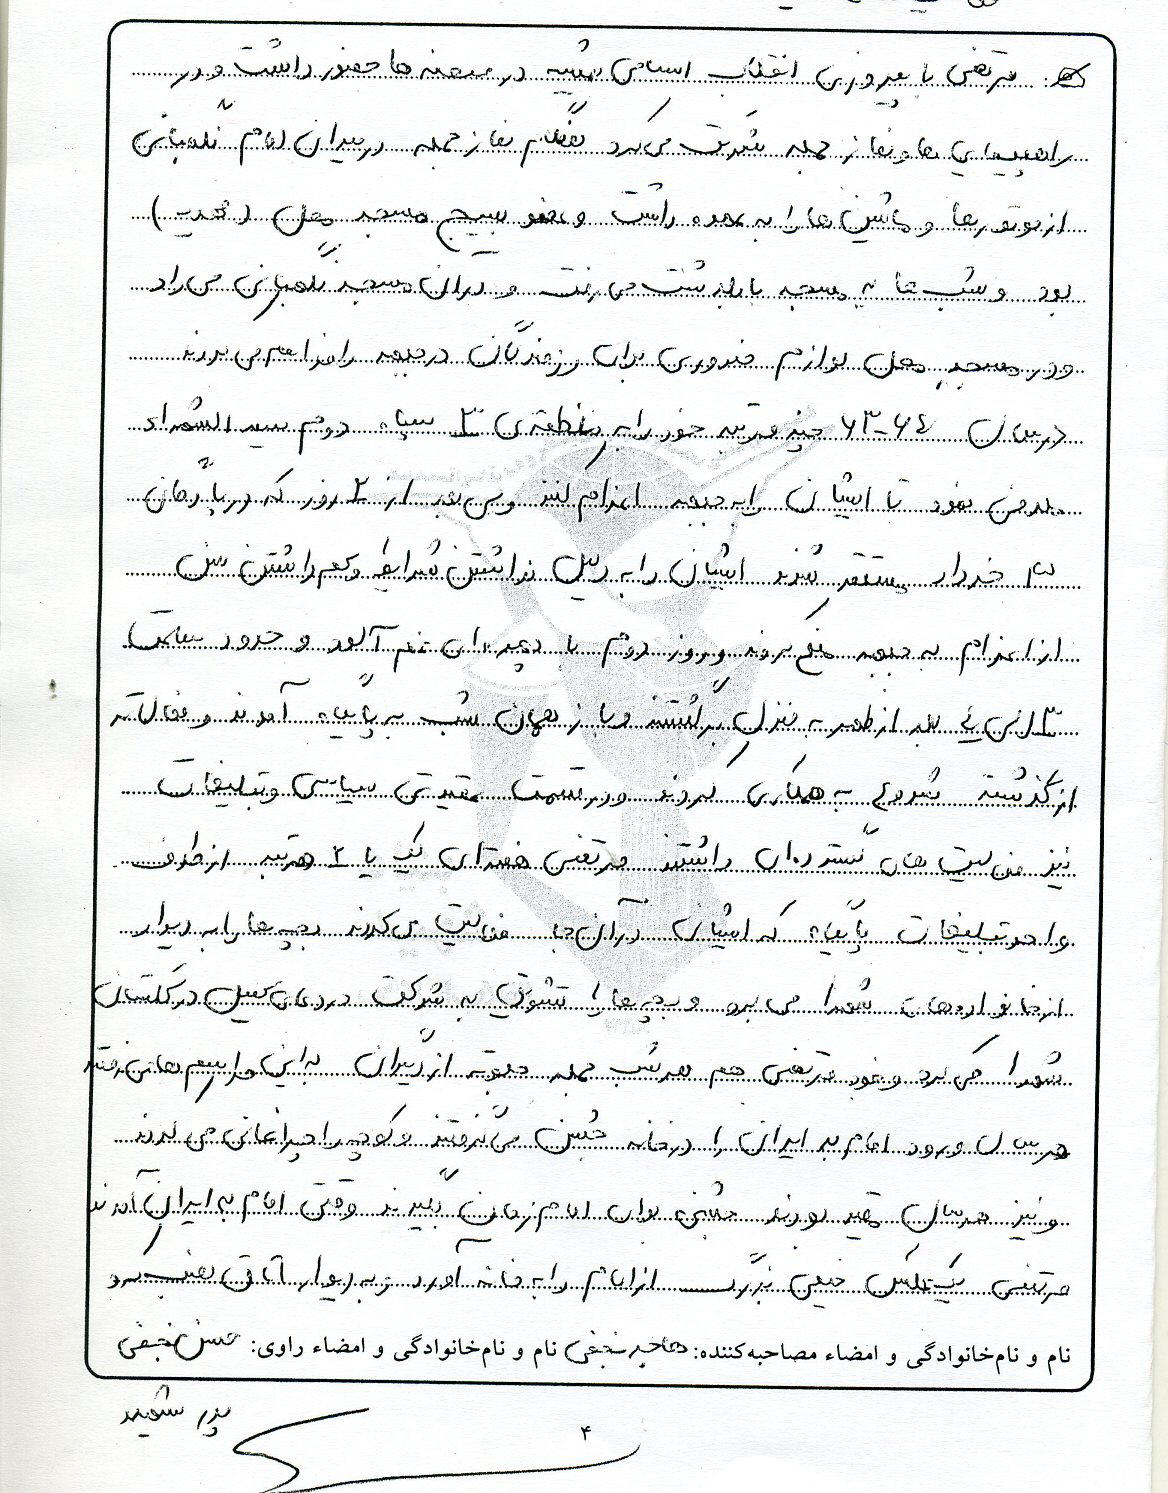 مرتضی با پیروزی انقلاب اسلامی همیشه در صحنه ها حضور داشت و در
راهپیمایی ها و نماز جمعه شرکت می کرد هنگام نماز جمعه در میدان امام نگهبانی
از موتورها و ماشین ها را به عهده داشت و عضو بسیج مسجد محل (محمدیه)
بود و شب ها به مسجد یا پایگاه می رفت و در آن مسجد نگهبانی می داد
و در مسجد محل لوازم ضروری برای رزمندگان در جبهه را فراهم می کردند
در سال ۶۴-۶۳ چند مرتبه خود را به منطقه ی ۳ سپاه دوم سید الشهداء
معرفی نمود تا ایشان را به جبهه اعزام کنند و پس بعد از ۲ روز که در پادگان
۳ خرداد مستقر شدند ایشان را به دلیل نداشتن شرایط و کم داشتن سن
از اعزام به جبهه منع کردند و روز دوم با چهره ای غم آلود و حدود ساعت
۳ الی ۴ بعد از ظهر به منزل برگشتند و باز همان شب به پایگاه آمدند و فعال تر
از گذشته شروع به همکاری کردند و در قسمت عقیدتی سیاسی و تبلیغات
نیز فعالیت های گسترده ای داشتند مرتضی هفته ای یک یا ۲ مرتبه از طرف
واحد تبلیغات پایگاه که ایشان در آن جا فعالیت می کردند بچه ها را به دیدار
از خانواده های شهدا می برد و بچه ها را تشویق به شرکت در دعای کمیل در گلستان
شهدا می کرد و خود مرتضی هم هر شب جمعه به این مراسم ها می رفتند
هر سال ورود امام به ایران را در خانه جشن می گرفتند و کوچه را چراغانی می کردند
و نیز هر سال مقید بودند جشنی برای امام زمان بگیرند وقتی امام به ایران آمدند
مرتضی یک عکس خیلی بزرگ از امام را به خانه آورد و به دیوار اتاق نصب کرد
نام و نام‌خانوادگی و امضاء مصاحبه‌کننده: نجفی نام و نام‌خانوادگی و امضاء راوی: حسن نجفی
پدر شهید
۴